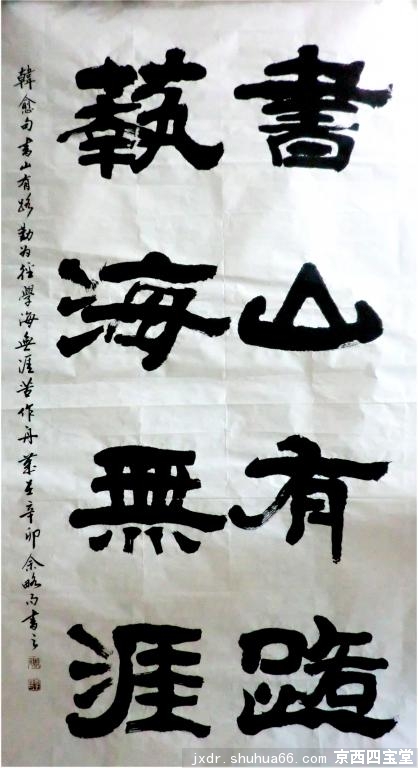 書山有路
藝海無涯
韓愈句書山有路勤為徑學海無涯苦作舟歲在辛卯余略而書之
jxdr.shuhua66.com 京西四宝堂